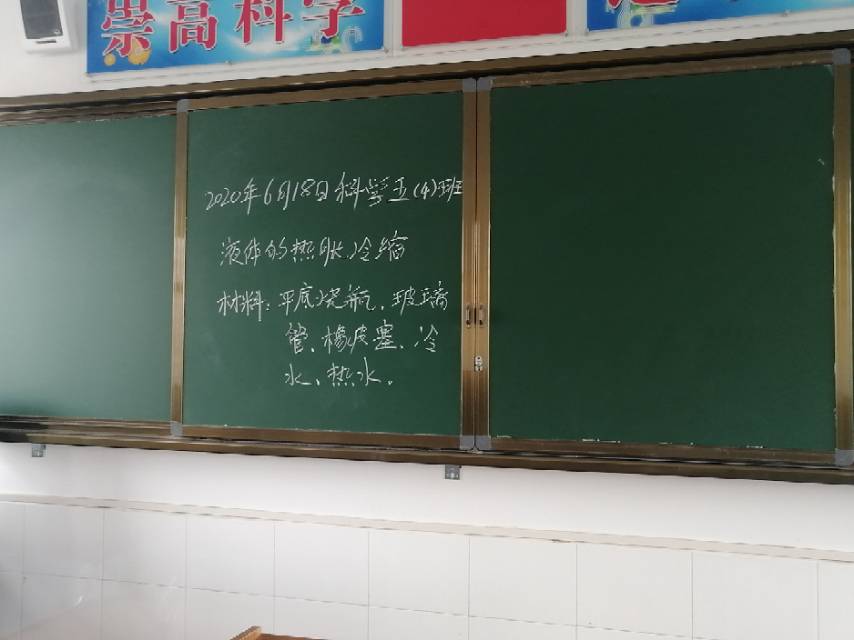 崇高科学
2020年6月18日 科学 五(4)班
液体的热胀冷缩
材料：平底烧瓶、玻璃
管、橡皮塞、冷
水、热水。